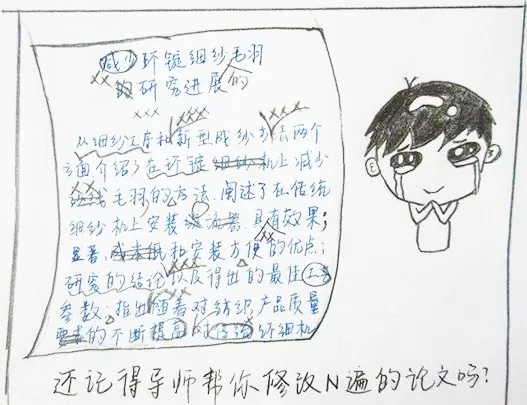 减少环锭细纱毛羽
的研究进展的
从细纱工序和新型成纱方法两个
方面介绍了在环锭细纱机上减少
纱线毛羽的方法.阐述了在传统
细纱机上安装 具有效果;
显著、成本低和安装方便的优点;
研究的结论以及得出的最佳工艺
参数;指出随着对纺织产品质量
要求的不断提高对传统纤细机
还记得导师帮你修改N遍的论文吗?